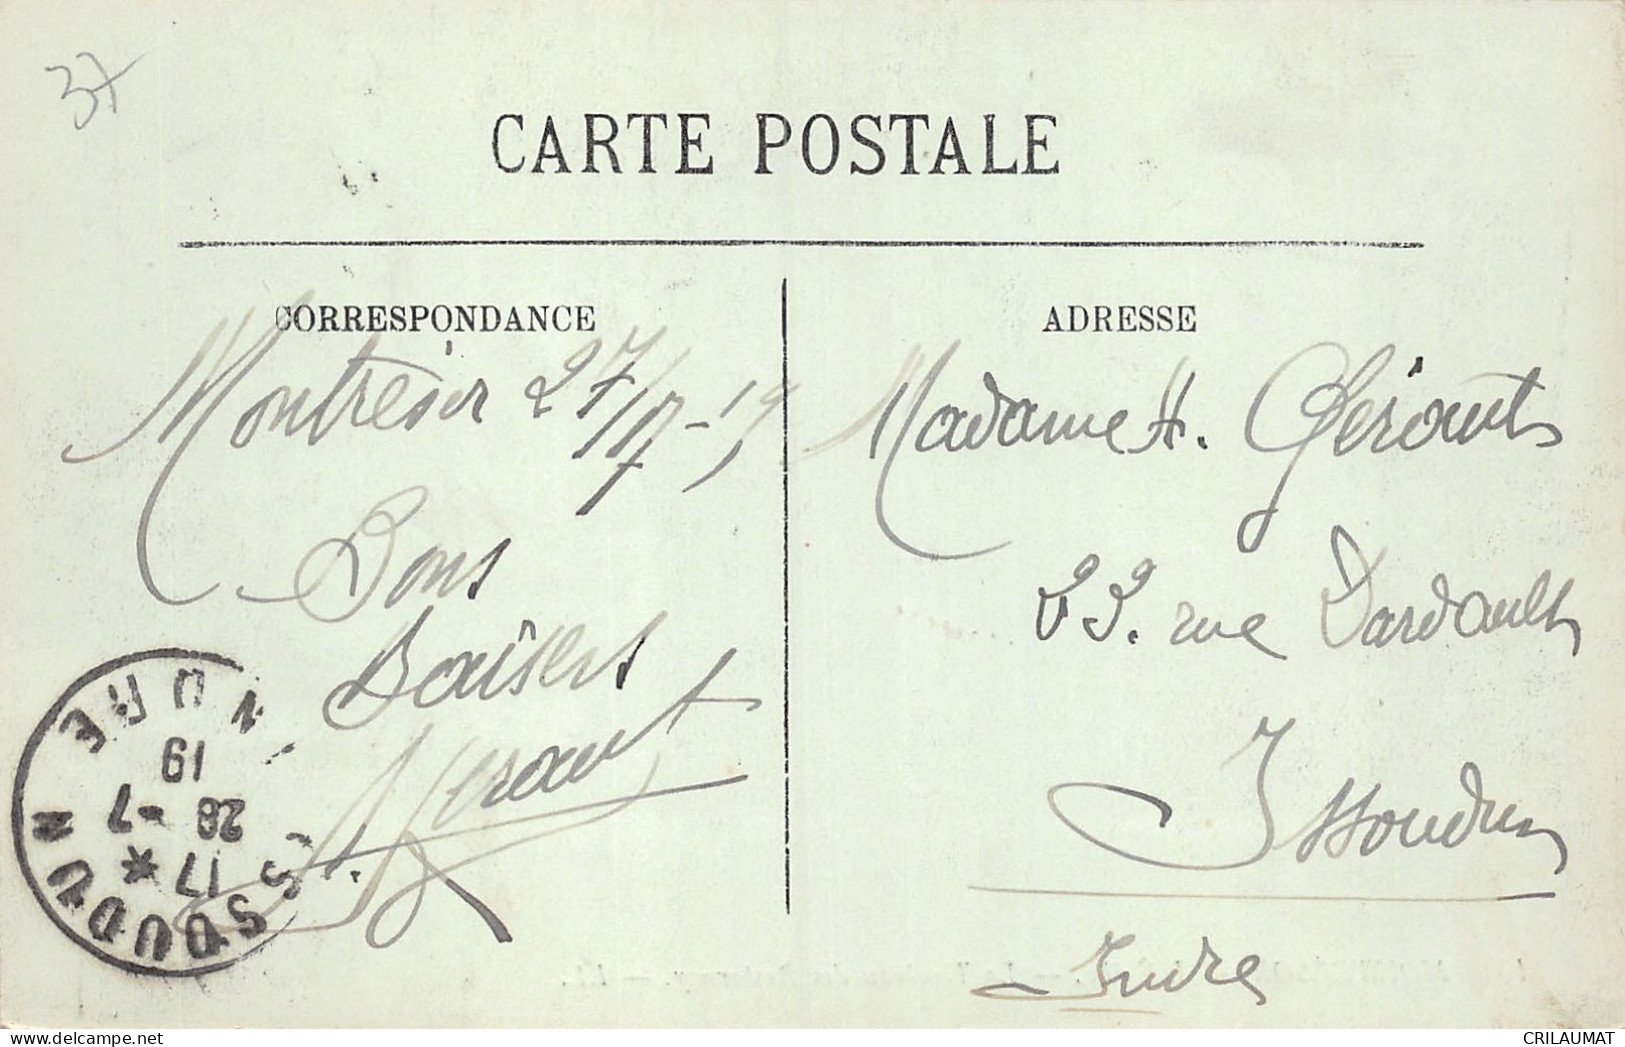 37
CARTE POSTALE
CORRESPONDANCE
Montrésor 27/7-19
Bons
Baisers
Gerault
ADRESSE
Madame H. Gérault
22. rue Dardault
Issoudun
Indre
ISSOUDUN
INDRE
17 *
28 -7
19
delcampe.net
CRILAUMAT